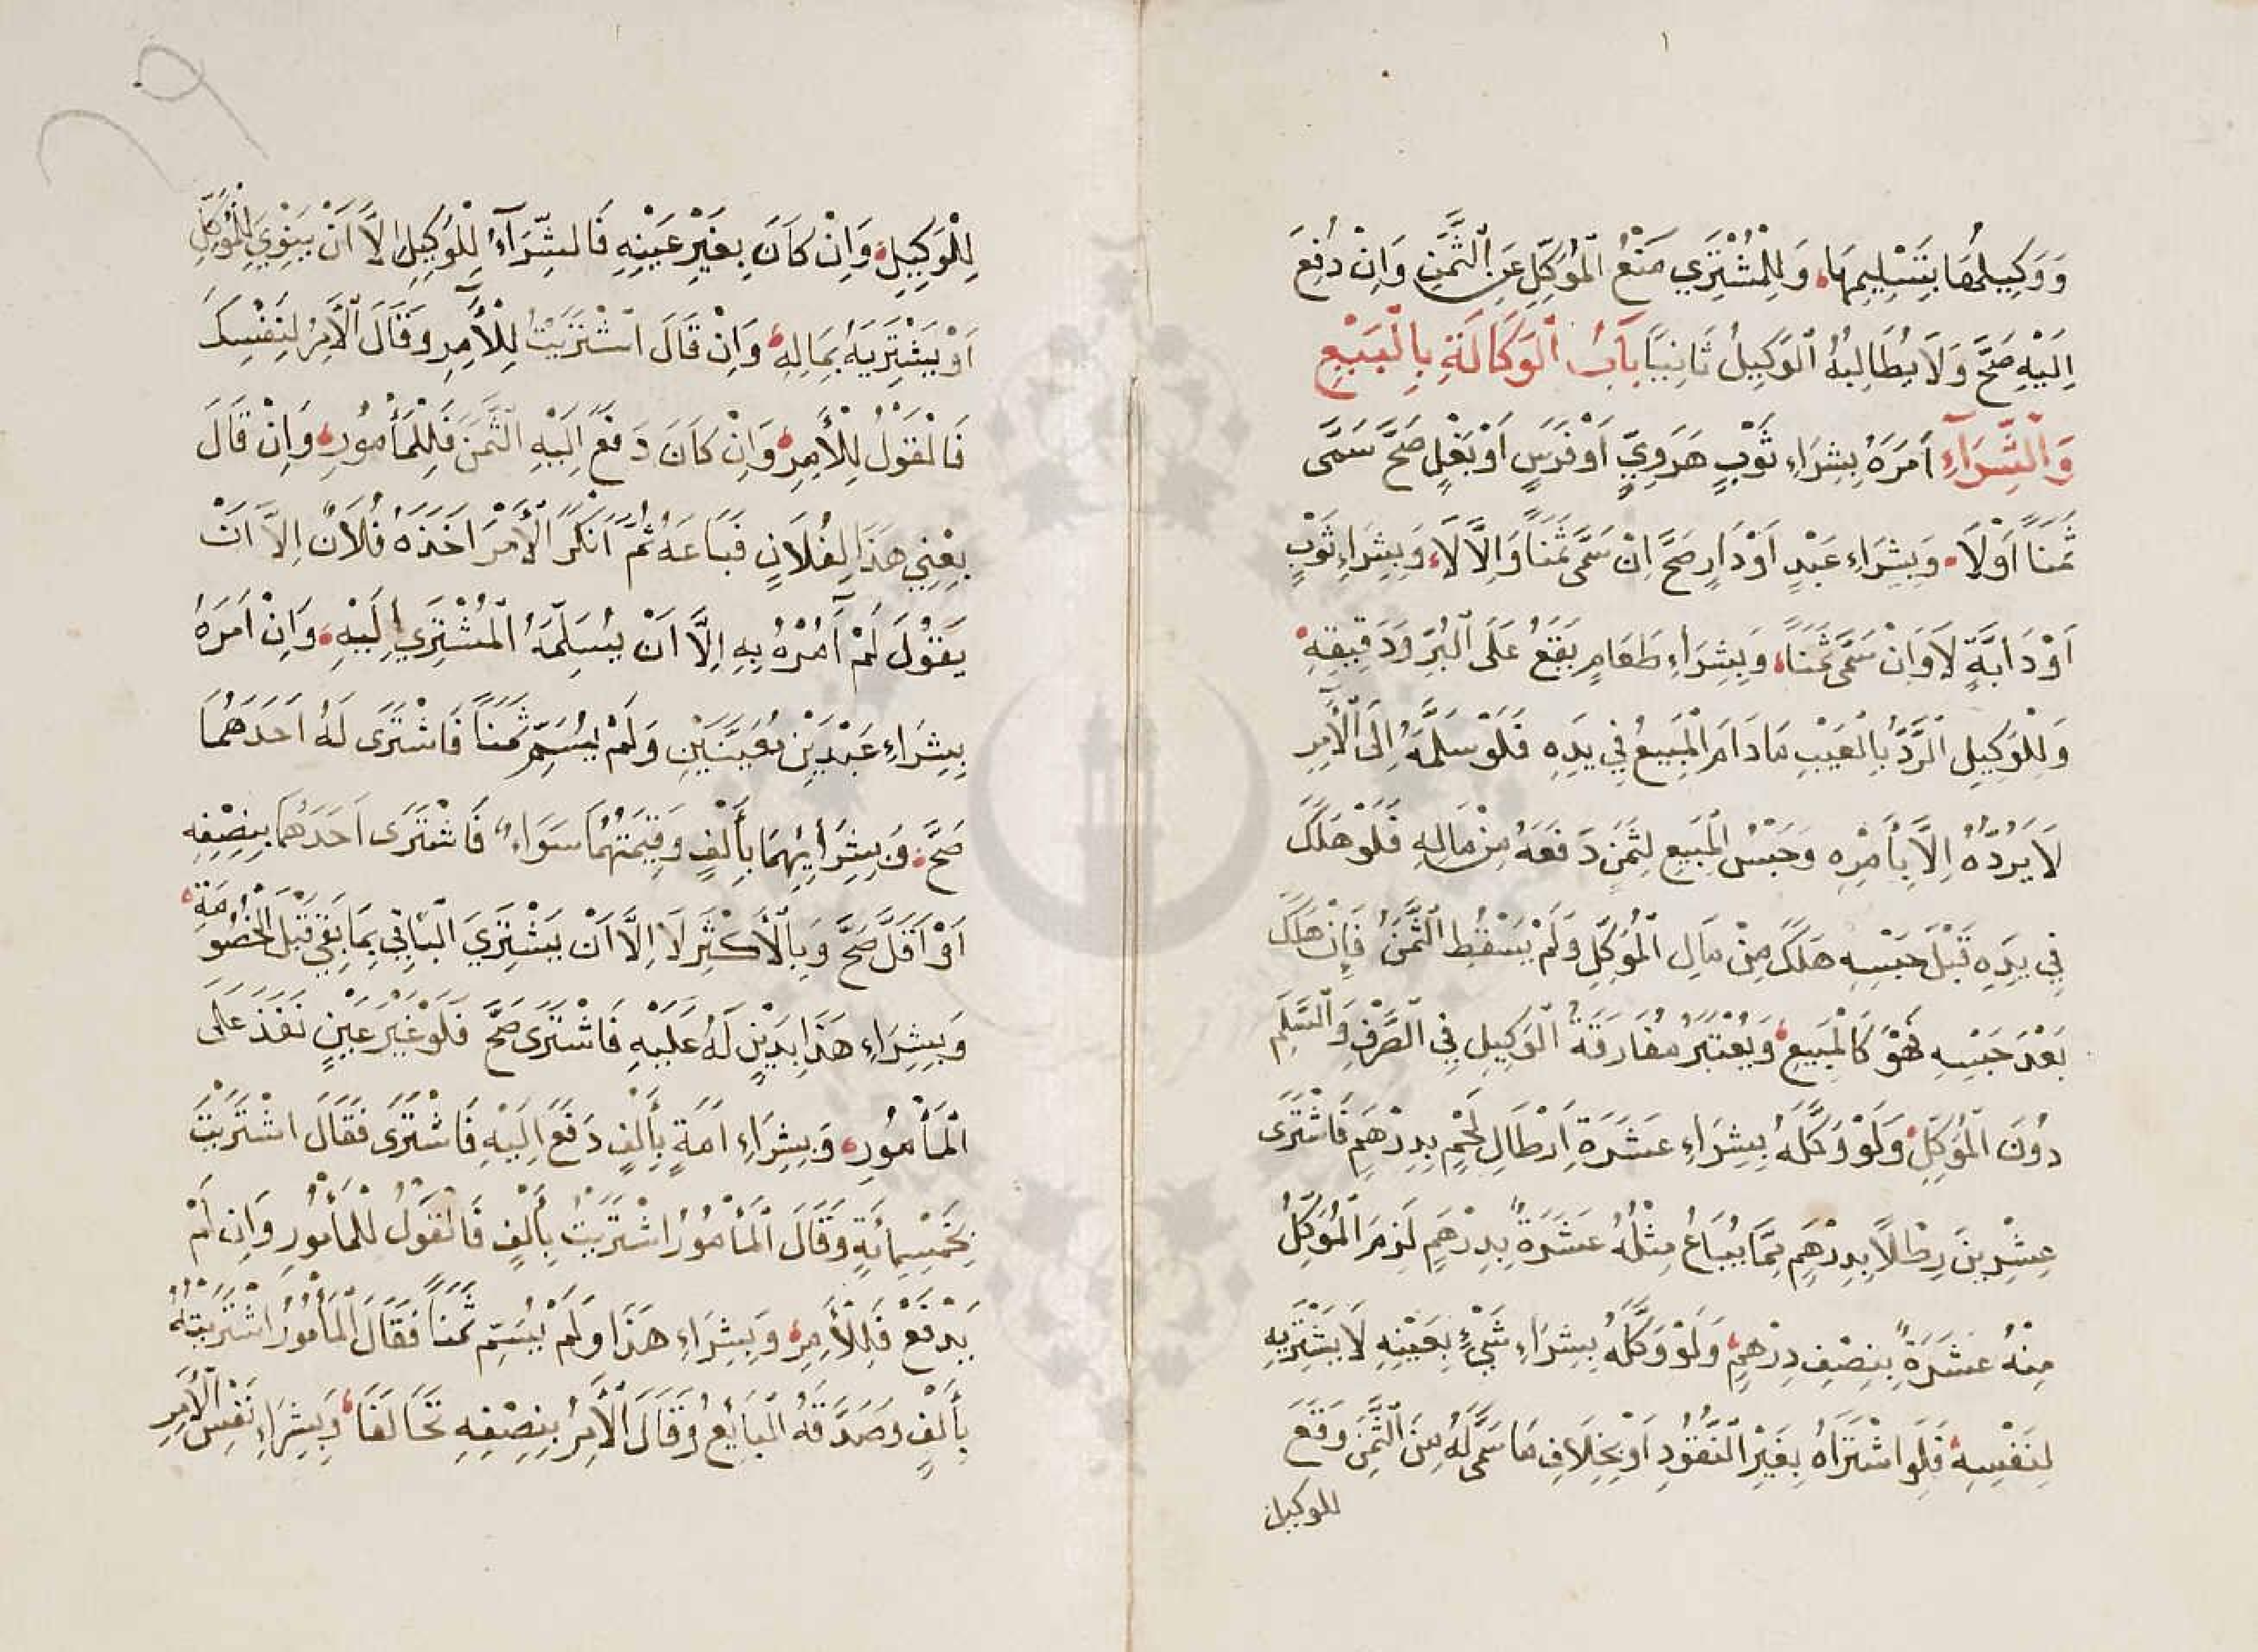 وَوَكِيلُهَا بِتَسْلِيمِهَا وَلِلْمُشْتَرِي مَنْعُ الْمُوَكِّلِ عَنِ الثَّمَنِ وَاِنْ دُفِعَ
اِلَيْهِ صَحَّ وَلَا يُطَالِبُهُ الْوَكِيلُ ثَانِيًا بَابُ الْوَكَالَةِ بِالْبَيْعِ
وَالشِّرَآءِ اَمَرَهُ بِشِرَاءِ ثَوْبٍ هَرَوِيٍّ اَوْ فَرَسٍ اَوْ بَغْلٍ صَحَّ سَمَّى
ثَمَنًا اَوْ لَا وَبِشِرَاءِ عَبْدٍ اَوْ دَارٍ صَحَّ اِنْ سَمَّى ثَمَنًا وَاِلَّا لَا وَبِشِرَاءِ ثَوْبٍ
اَوْ دَابَّةٍ لَا وَاِنْ سَمَّى ثَمَنًا وَبِشِرَاءِ طَعَامٍ يَقَعُ عَلَى الْبُرِّ وَدَقِيقِهِ
وَلِلْوَكِيلِ الرَّدُّ بِالْعَيْبِ مَا دَامَ الْمَبِيعُ فِي يَدِهِ فَلَوْ سَلَّمَهُ اِلَى الْآمِرِ
لَا يَرُدُّهُ اِلَّا بِأَمْرِهِ وَحَبْسُ الْمَبِيعِ لِثَمَنٍ دَفَعَهُ مِنْ مَالِهِ فَلَوْ هَلَكَ
فِي يَدِهِ قَبْلَ حَبْسِهِ هَلَكَ مِنْ مَالِ الْمُوَكِّلِ وَلَمْ يَسْقُطِ الثَّمَنُ فَاِنْ هَلَكَ
بَعْدَ حَبْسِهِ فَهُوَ كَالْمَبِيعِ وَيُعْتَبَرُ مُفَارَقَةُ الْوَكِيلِ فِي الصَّرْفِ وَالسَّلَمِ
دُونَ الْمُوَكِّلِ وَلَوْ وَكَّلَهُ بِشِرَاءِ عَشَرَةِ اَرْطَالِ لَحْمٍ بِدِرْهَمٍ فَاشْتَرَى
عِشْرِينَ رِطْلًا بِدِرْهَمٍ مِمَّا يُبَاعُ مِثْلُهُ عَشَرَةً بِدِرْهَمٍ لَزِمَ الْمُوَكِّلَ
مِنْهُ عَشَرَةً بِنِصْفِ دِرْهَمٍ وَلَوْ وَكَّلَهُ بِشِرَاءِ شَيْءٍ بِعَيْنِهِ لَا يَشْتَرِيهِ
لِنَفْسِهِ فَلَوِ اشْتَرَاهُ بِغَيْرِ النُّقُودِ اَوْ بِخِلَافِ مَا سَمَّى لَهُ مِنَ الثَّمَنِ وَقَعَ
للوكيل
لِلْوَكِيلِ وَاِنْ كَانَ بِغَيْرِ عَيْنِهِ فَالشِّرَآءُ لِلْوَكِيلِ اِلَّا اَنْ يَنْوِيَ لِلْمُوَكِّلِ
اَوْ يَشْتَرِيَهُ بِمَالِهِ وَاِنْ قَالَ اشْتَرَيْتُ لِلْآمِرِ وَقَالَ الْآمِرُ لِنَفْسِكَ
فَالْقَوْلُ لِلْآمِرِ وَاِنْ كَانَ دَفَعَ اِلَيْهِ الثَّمَنَ فَلِلْمَأْمُورِ وَاِنْ قَالَ
بِعْنِي هَذَا لِفُلَانٍ فَبَاعَهُ ثُمَّ اَنْكَرَ الْأَمْرَ اَخَذَهُ فُلَانٌ اِلَّا اَنْ
يَقُولَ لَمْ آمُرْهُ بِهِ اِلَّا اَنْ يُسَلِّمَهُ الْمُشْتَرِي اِلَيْهِ وَاِنْ اَمَرَهُ
بِشِرَاءِ عَبْدَيْنِ مُعَيَّنَيْنِ وَلَمْ يُسَمِّ ثَمَنًا فَاشْتَرَى لَهُ اَحَدَهُمَا
صَحَّ وَبِشِرَائِهِمَا بِأَلْفٍ وَقِيمَتُهُمَا سَوَاءٌ فَاشْتَرَى اَحَدَهُمَا بِنِصْفِهِ
اَوْ اَقَلَّ صَحَّ وَبِالْأَكْثَرِ لَا اِلَّا اَنْ يَشْتَرِيَ الْبَاقِي بِمَا بَقِيَ قَبْلَ الْخُصُومَةِ
وَبِشِرَاءِ هَذَا بِدَيْنٍ لَهُ عَلَيْهِ فَاشْتَرَى صَحَّ فَلَوْ غَيْرَ عَيْنٍ نَفَذَ عَلَى
الْمَأْمُورِ وَبِشِرَاءِ اَمَةٍ بِأَلْفٍ دَفَعَ اِلَيْهِ فَاشْتَرَى فَقَالَ اشْتَرَيْتَ
بِخَمْسِمِائَةٍ وَقَالَ الْمَأْمُورُ اشْتَرَيْتُ بِأَلْفٍ فَالْقَوْلُ لِلْمَأْمُورِ وَاِنْ لَمْ
يَدْفَعْ فَلِلْآمِرِ وَبِشِرَاءِ هَذَا وَلَمْ يُسَمِّ ثَمَنًا فَقَالَ الْمَأْمُورُ اشْتَرَيْتُهُ
بِأَلْفٍ وَصَدَّقَهُ الْبَايِعُ وَقَالَ الْآمِرُ بِنِصْفِهِ تَحَالَفَا وَبِشِرَاءِ نَفْسِ الْآمِرِ